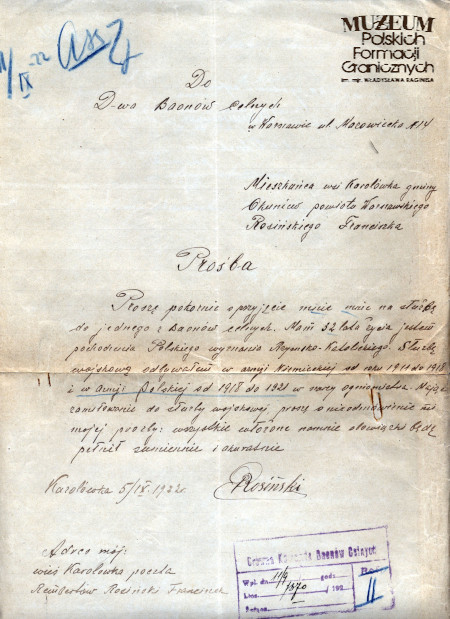 MUZEUM
Polskich
Formacji
Granicznych
im. mjr. WŁADYSŁAWA RAGINISA
11/IX 22
Do
D-wa Baonów Celnych
w Warszawie ul. Mazowiecka N14
Mieszkańca wsi Karolówka gminy
Okuniew powiatu Warszawskiego
Rosińskiego Franciszka
Prośba
Proszę pokornie o przyjęcie mnie mnie na służbę
do jednego z Baonów celnych. Mam 32 lata życia jestem
pochodzenia Polskiego wyznania Rzymsko-Katolickiego. Służbę
wojskową odbywałem w armji Niemieckiej od roku 1911 do 1918
i w armji Polskiej od 1918 do 1921 w
zamiłowanie do służby wojskowej proszę o nieodmówienie mi
mojej prośby: wszystkie włożone na mnie obowiązki będę
pełnił sumiennie i akuratnie
Karolówka 5/IX. 1922 r.
Rosiński
Adres mój:
wieś Karolówka poczta
Rembertów Rosiński Franciszek
Główna Komenda Baonów Celnych
Wpł. dn. 11/9 godz.
L.inw. 1870 192
11